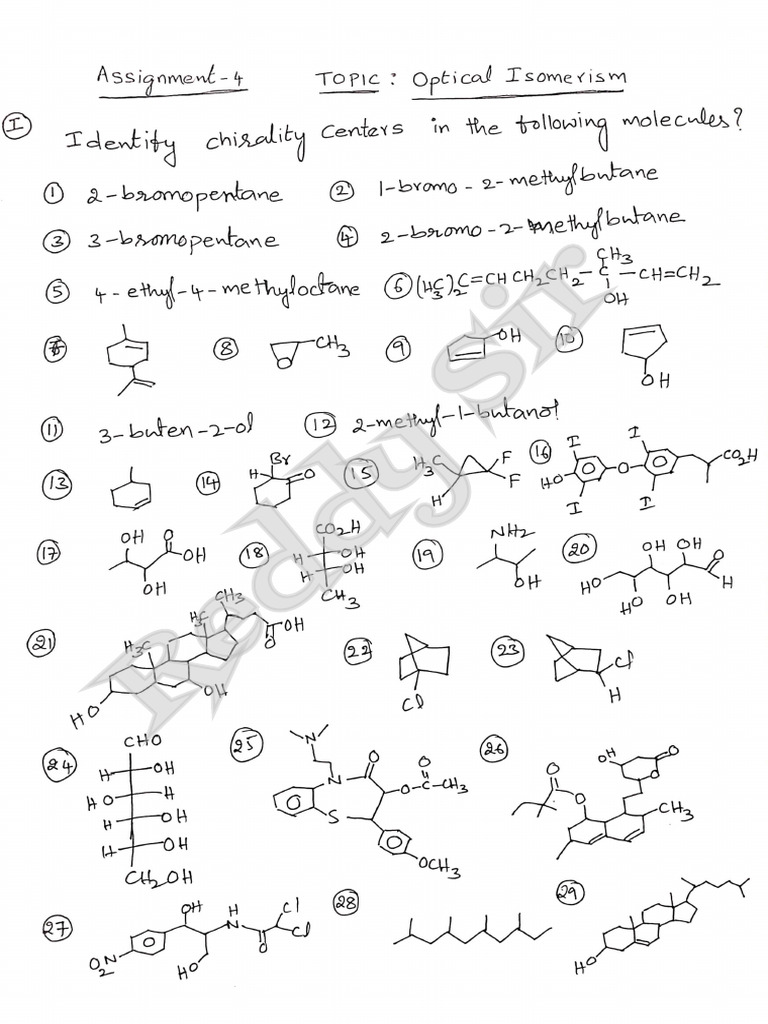 Assignment-4 TOPIC : Optical Isomerism
I Identify chirality centers in the following molecules?
1 2-bromopentane 2 1-bromo-2-methylbutane
3 3-bromopentane 4 2-bromo-2-methylbutane
5 4-ethyl-4-methyloctane 6 (H3C)2C=CHCH2CH2-C-CH=CH2
CH3
OH
7 8 CH3 9 OH 10 OH
11 3-buten-2-ol 12 2-methyl-1-butanol
13 14 Br H O 15 H3C H F F 16 I I HO O I I CO2H
17 OH O OH OH 18 CO2H H OH H OH CH3 19 NH2 OH 20 OH OH O HO HO OH H
21 CH3 H3C H3C OH O HO OH 22 Cl 23 Cl H
24 CHO H OH HO H H OH H OH CH2OH
25 N N O O-C-CH3 O S OCH3
26 HO O O O O CH3
27 OH H N Cl Cl O HO O2N
28 29 HO
Reddy Sir